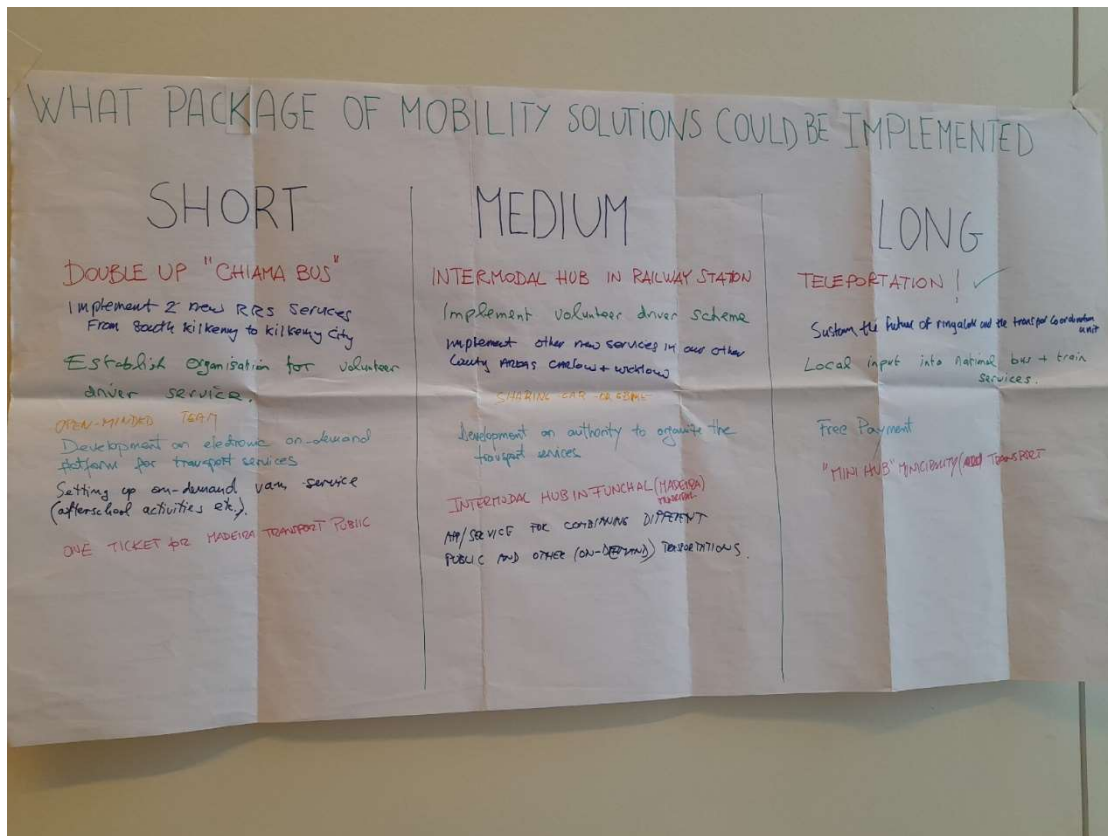 WHAT PACKAGE OF MOBILITY SOLUTIONS COULD BE IMPLEMENTED
SHORT
DOUBLE UP "CHIAMA BUS"
Implement 2 new RRS Services
From South Kilkenny to Kilkenny City
Establish organisation for volunteer
driver service.
OPEN-MINDED TEAM
Development an electronic on-demand
platform for transport services
Setting up on-demand vam service
(afterschool activities etc).
ONE TICKET for MADEIRA TRANSPORT PUBLIC
MEDIUM
INTERMODAL HUB IN RAILWAY STATION
Implement volunteer driver scheme
implement other new services in our other
County AREAS CARLOW + WICKLOW
SHARING CAR
Development an authority to organize the
transport services
INTERMODAL HUB IN FUNCHAL (MADEIRA)
APP/SERVICE FOR COMBINING DIFFERENT
PUBLIC AND OTHER (ON-DEMAND)
LONG
TELEPORTATION !
Sustain the future of ringalink and the transport coordination
unit
Local input into national bus + train
services.
Free Payment
"MINI HUB" MUNICIPALITY TRANSPORT